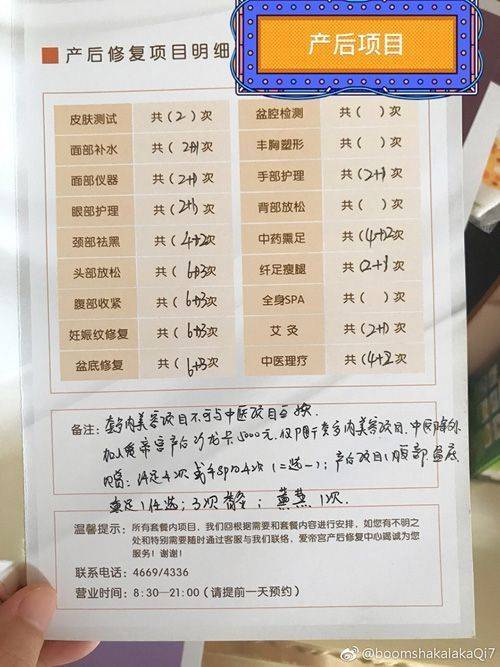 产后修复项目明细
产后项目
皮肤测试 共（2）次 盆腔检测 共（ ）次
面部补水 （2+1）次 丰胸塑形 共（ ）次
面部仪器 （2+1）次 手部护理 共（2+1）次
眼部护理 （2+1）次 背部放松 共（ ）次
颈部祛黑 （4+2次 中药熏足 （4+2次
头部放松 （6+3次 纤足瘦腿 （2+1次
腹部收紧 （6+3次 全身SPA 共（ ）次
妊娠纹修复 （6+3次 艾灸 共（2+1）次
盆底修复 （6+3次 中医理疗 共（4+2次
备注：套餐内美容项目不可与中医项目互换
加入爱帝宫产后沙龙卡5000元，仅限于套餐内美容项目，中医除外
4次 手SPA4次（二选一）；产后项目：腹部 盆底
熏足1任选；3次 ；熏蒸1次．
温馨提示：所有套餐内项目，我们回根据需要和套餐内容进行安排，如您有不明之
处和特别需要随时通过客服与我们联络，爱帝宫产后修复中心竭诚为您
服务！谢谢！
联系电话：4669/4336
营业时间：8:30—21:00（请提前一天预约）
@boomshakalakaQi7